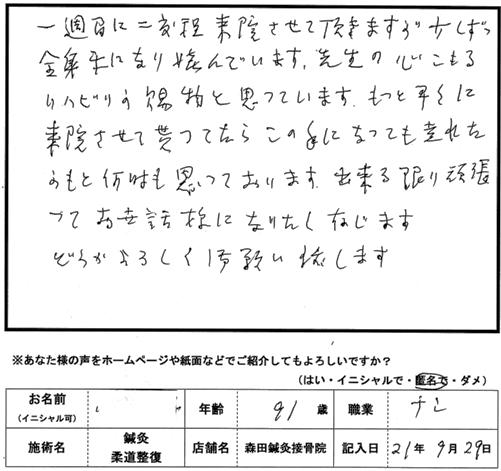 一週間に二度程来院させて頂きますが少しずつ
全快になり喜んでいます。先生の心こもる
リハビリの賜物と思っています。もっと早くに
来院させて貰ってたら この年になっても 走れた
のもと何時も思っております。出来る限り頑張
って お世話様になりたく存じます
どうかよろしくお願い致します
※あなた様の声をホームページや紙面などでご紹介してもよろしいですか?
(はい・イニシャルで・匿名で・ダメ)
お名前 (イニシャル可) 年齢 91 歳 職業 ナシ
施術名 鍼灸 柔道整復 店舗名 森田鍼灸接骨院 記入日 21年 9月 29日